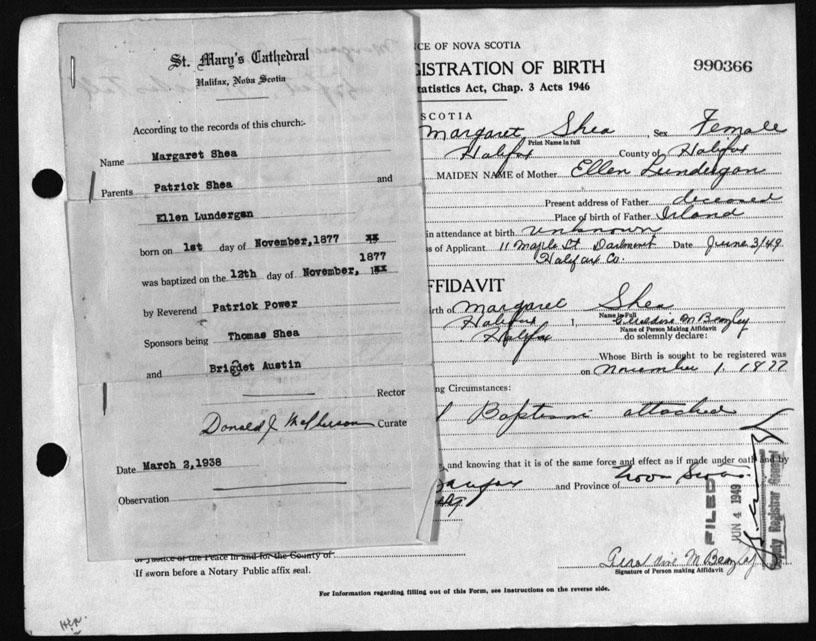 St. Mary's Cathedral
Halifax, Nova Scotia
According to the records of this church:-
Name Margaret Shea
Parents Patrick Shea and
Ellen Lundergan
born on 1st day of November,1877 xx
1877
was baptized on the 12th day of November, 1xx
by Reverend Patrick Power
Sponsors being Thomas Shea
and Brigdet Austin
Rector
Donald J McPherson Curate
Date March 2,1938
Observation
CE OF NOVA SCOTIA
GISTRATION OF BIRTH
990366
tatistics Act, Chap. 3 Acts 1946
SCOTIA
Margaret Shea Sex Female
Print Name in full
Halifax County of Halifax
MAIDEN NAME of Mother Ellen Lundergan
Present address of Father deceased
Place of birth of Father Irland
in attendance at birth unknown
s of Applicant 11 Maple St. Dartmout Date June 3/49
Halifax Co.
FFIDAVIT
irth of Margaret Shea
Name in Full
Halifax I, Geraldine M Beazley
Name of Person Making Affidavit
Halifax do solemnly declare:
Whose Birth is sought to be registered was
on November 1, 1877
ng Circumstances:
Baptism attached
and knowing that it is of the same force and effect as if made under oath and by
Halifax and Province of Nova Scotia
FILED
JUN 4 1949
Deputy Registrar General
or Justice of the Peace in and for the County of
If sworn before a Notary Public affix seal.
Geraldine M Beazley
Signature of Person making Affidavit
For Information regarding filling out of this Form, see Instructions on the reverse side.